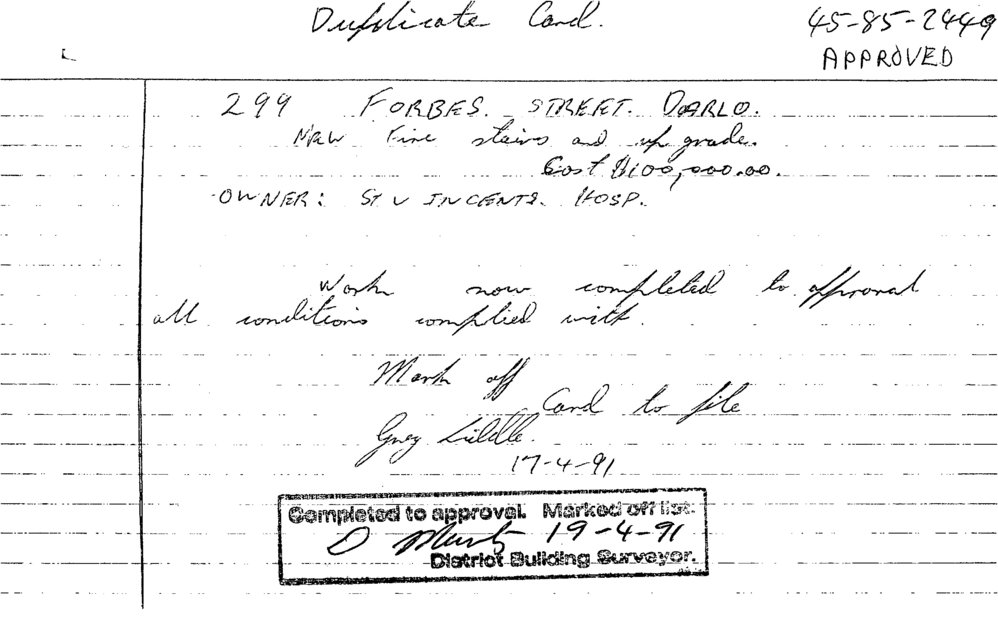 Duplicate Card.
45-85-2449
APPROVED
299 FORBES. STREET. DARLO.
New Fire stairs and up grade.
Cost $100,000.00.
OWNER: ST VINCENTS. HOSP.
Work now completed to approval
all conditions complied with.
Mark off
Card to file
Greg Liddle.
17-4-91
Completed to approval. Marked off list.
D 19-4-91
District Building Surveyor.